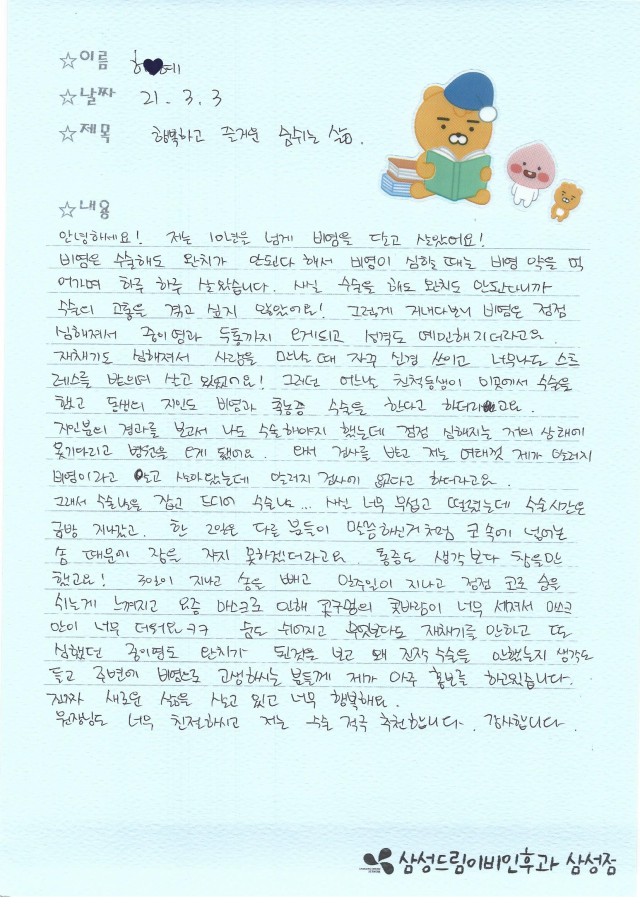 ☆이름 허♥예
☆날짜 21. 3. 3
☆제목 행복하고 즐거운 숨쉬는 삶.
☆내용
안녕하세요! 저는 10년을 넘게 비염을 달고 살았어요!
비염은 수술해도 완치가 안된다 해서 비염이 심할 때는 비염 약을 먹
어가며 하루 하루 살았습니다. 사실 수술을 해도 완치도 안된다니까
수술의 고통을 겪고 싶지 않았어요! 그렇게 지내다보니 비염은 점점
심해져서 중이염과 두통까지 오게되고 성격도 예민해지더라고요.
재채기도 심해져서 사람을 만날 때 자꾸 신경 쓰이고 너무나도 스트
레스를 받으며 살고 있었어요! 그러던 어느날 친척동생이 이곳에서 수술을
했고 동생의 지인도 비염과 축농증 수술을 한다고 하더라고요.
지인분의 경과를 보고서 나도 수술해야지 했는데 점점 심해지는 저의 상태에
못기다리고 병원을 오게 됐어요. 와서 검사를 받고 저는 여태껏 제가 알러지
비염이라고 알고 살아왔는데 알러지 검사에 없다고 하더라고요.
그래서 수술날을 잡고 드디어 수술날... 사실 너무 무섭고 떨렸는데 수술시간은
금방 지나갔고. 한 2일은 다른 분들이 말씀하신거처럼 코 속에 넣어논
솜 때문에 잠을 자지 못하겠더라고요. 통증도 생각보다 참을만
했고요! 3일이 지나고 솜을 빼고 일주일이 지나고 점점 코로 숨을
쉬는게 느껴지고 요즘 마스크로 인해 콧구멍의 콧바람이 너무 세져서 마스크
안이 너무 더워요ㅋㅋ 숨도 쉬어지고 무엇보다도 재채기를 안하고 또
심했던 중이염도 완치가 된것을 보고 왜 진작 수술을 안했는지 생각도
들고 주변에 비염으로 고생하시는 분들께 제가 아주 홍보를 하고있습니다.
진짜 새로운 삶을 살고 있고 너무 행복해요.
원장님도 너무 친절하시고 저는 수술 적극 추천합니다. 감사합니다.
삼성드림이비인후과 삼성점